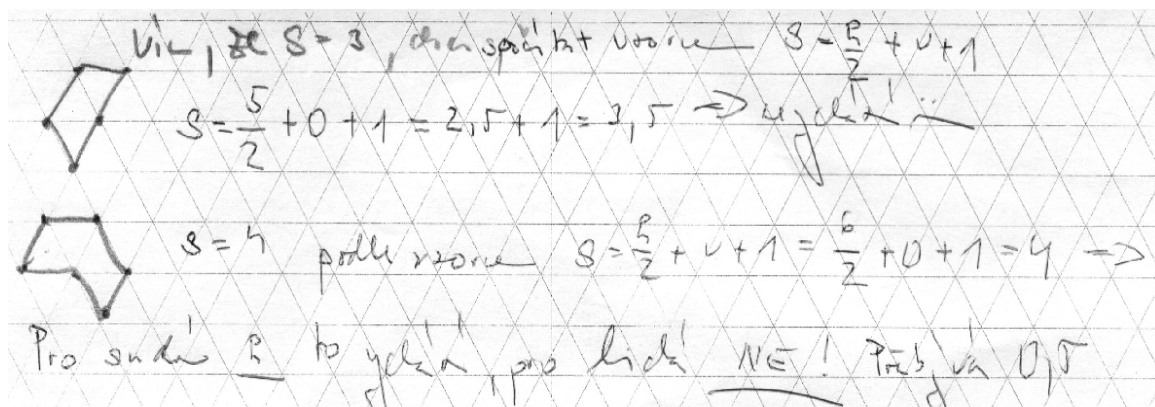 Vím, že S = 3, chci spočítat vzorcem S = h/2 + v + 1
S = 5/2 + 0 + 1 = 2,5 + 1 = 3,5 =>
S = 4 podle vzorce S = h/2 + v + 1 = 6/2 + 0 + 1 = 4 =>
Pro sudá h to , pro lichá NE! Přebývá 0,5